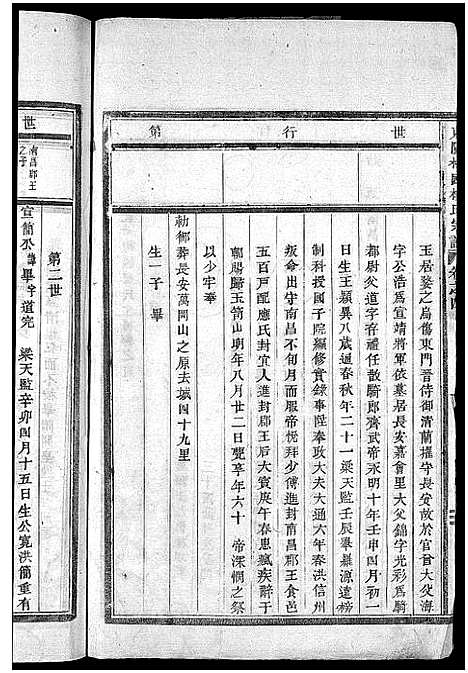 世
行
第
王居婺之烏傷東門晋侍御清蘭擢守長安故於官曾大父海
字公浩為宣靖將軍依墓居長安嘉會里大父錦字光彩為騎
都尉父道字存禮任散騎郎齊武帝永明十年壬申四月初一
日生王穎異八歲通春秋年二十一梁天監壬辰舉羅源遠榜
制科授國子院編修實錄事陞奉政大夫大通六年春洪信州
叛命出守南昌不旬月而服帝悅拜少傅進封南昌郡王食邑
五百戶配應氏封宜人進封郡王后大寶庚午春患瘋疾辭于
朝賜歸玉笥山明年八月廿二日薨享年六十 帝深憫之祭
以少牢奉
勅鄉葬長安萬岡山之原去城四十九里
生一子 畢
世
南昌郡王
之子
第二世
宣簡公諱畢字道完 梁天監辛卯四月十五日生公寬洪簡重有